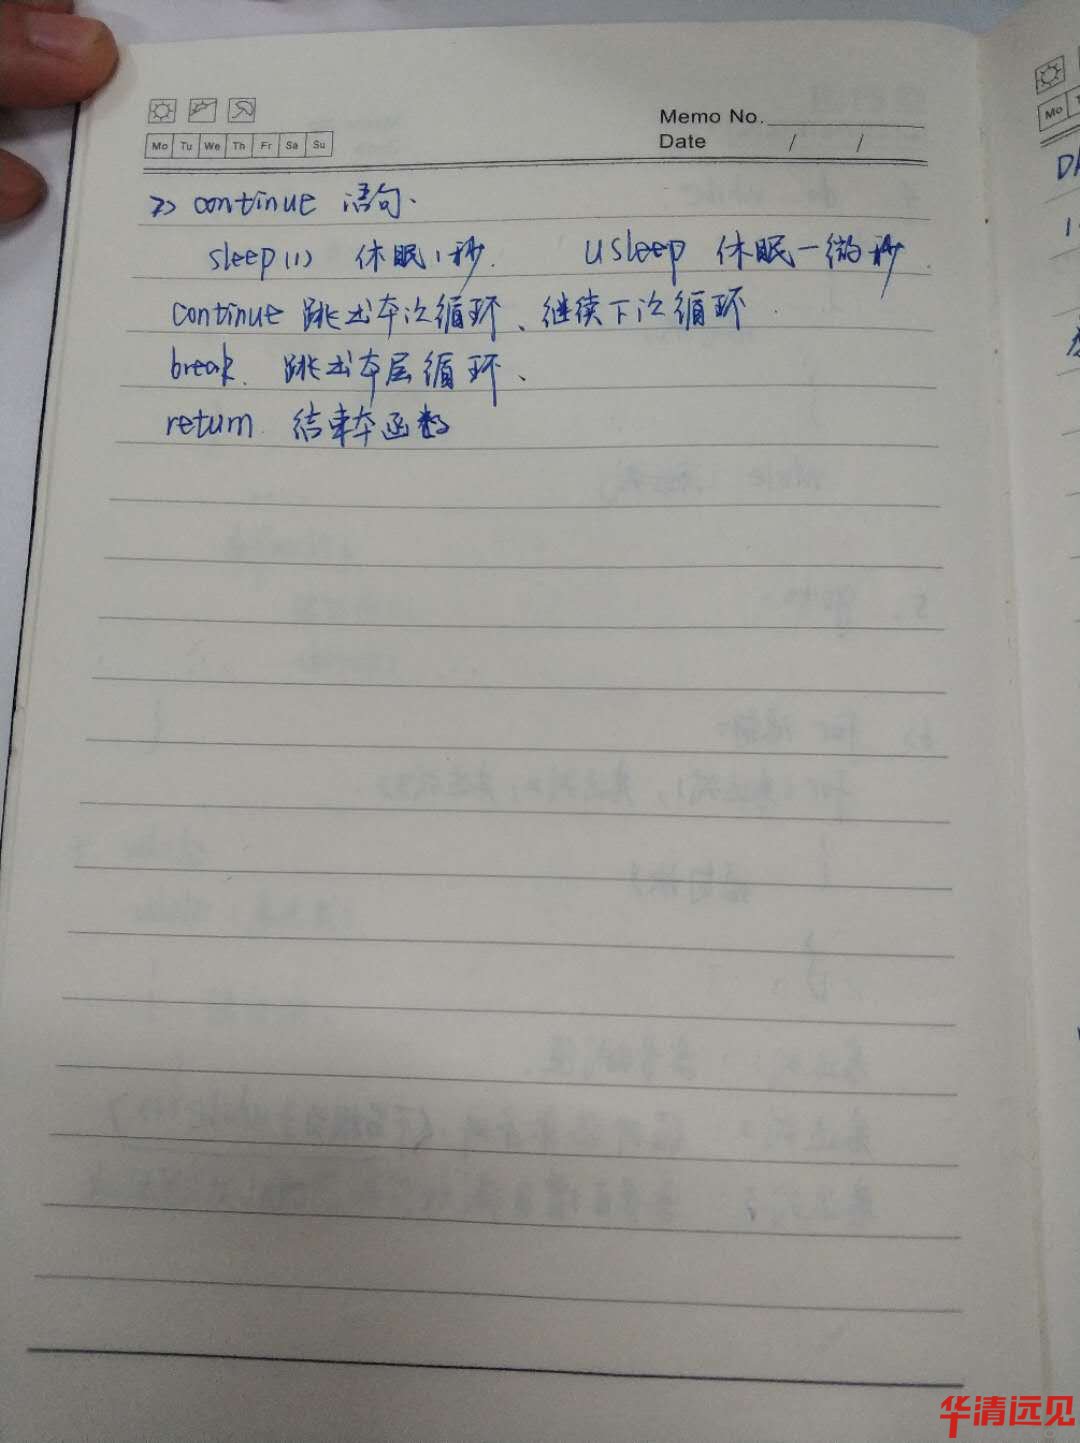 Memo No.
Mo Tu We Th Fr Sa Su
Date / /
2> continue 语句.
sleep(1) 休眠1秒. usleep 休眠一微秒.
continue 跳出本次循环、继续下次循环.
break. 跳出本层循环、
return. 结束本函数
Mo
华清远见